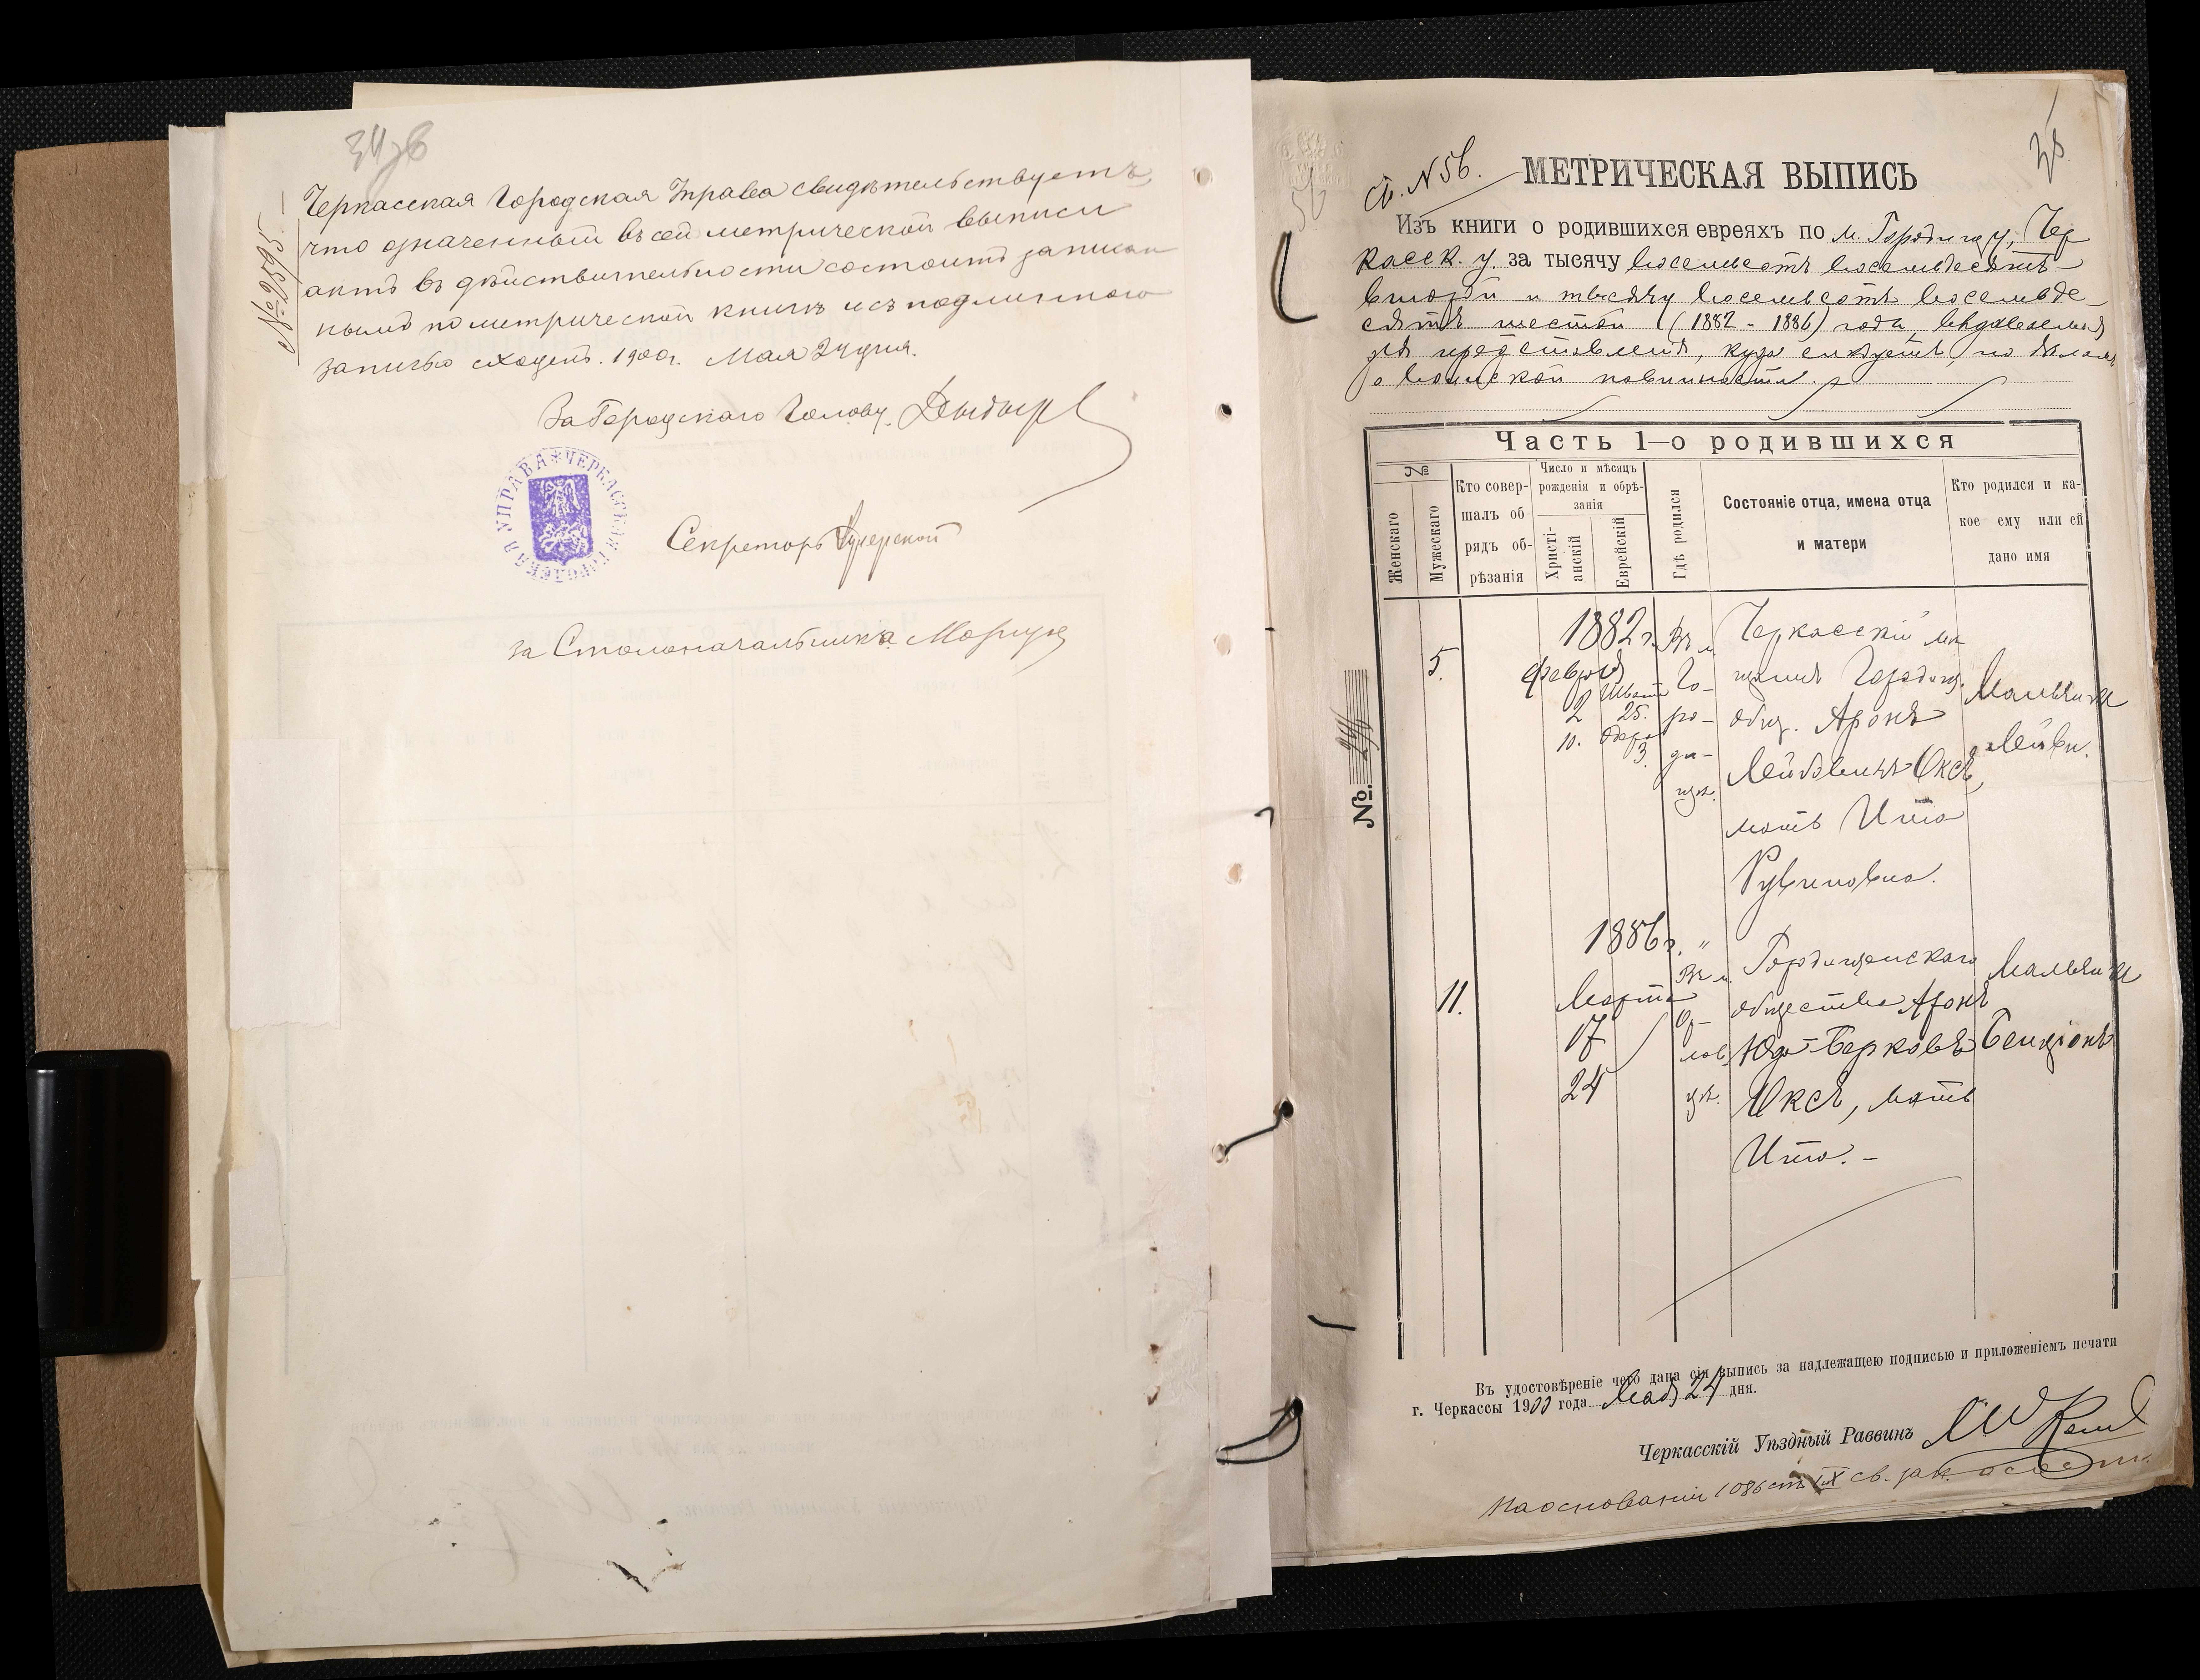 34 об
№ 2595.
Черкасская Городская Управа свидѣтельствуетъ,
что означенный въ сей метрической выписи
актъ въ дѣйствительности состоитъ записан
нымъ по метрической книгѣ и съ подлинною
записью сходенъ. 1900 г. Мая 24 дня.
За Городскаго Голову
ЧЕРКАССКАЯ ГОРОДСКАЯ УПРАВА
Секретарь
за Столоначальника
35
56
Св. N 56.
МЕТРИЧЕСКАЯ ВЫПИСЬ
Изъ книги о родившихся евреяхъ по м. Городищу, Чер
касск. у. за тысячу восемьсотъ восемьдесятъ
второй и тысячу восемьсотъ восемьде-
сятъ шестой (1882 - 1886) года, выдаваемая
для представленія, куда слѣдуетъ, по дѣламъ
о воинской повинности.
Часть 1-о родившихся
№
Женскаго
Мужескаго
Кто совер-
шалъ об-
рядъ об-
рѣзанія
Число и мѣсяцъ
рожденія и обрѣ-
занія
Христі-
анскій
Еврейскій
Гдѣ родился
Состояніе отца, имена отца
и матери
Кто родился и ка-
кое ему или ей
дано имя
№ 246
5.
1882 г.
Февраля
2
10.
Шватъ
25.
Адара
3.
Въ м.
Го-
ро-
ди-
щѣ.
Черкасскій мѣ
щанинъ Городищ.
общ. Аронъ
Лейбовичъ Оксъ,
мать Ита
Рувиновна.
Мальчикъ
Лейби.
11.
1886 г.
Марта
17
24
"
Въ м.
Ор-
лов
цѣ.
Городищенскаго
общества Аронъ
Юда-Берковъ
Оксъ, мать
Ита. -
Мальчикъ
Бенціонъ
Въ удостовѣреніе чего дана сія выпись за надлежащею подписью и приложеніемъ печати
г. Черкассы 1900 года Мая 24 дня.
Черкасскій Уѣздный Раввинъ
На основаніи 1086 ст. IX св. зак.